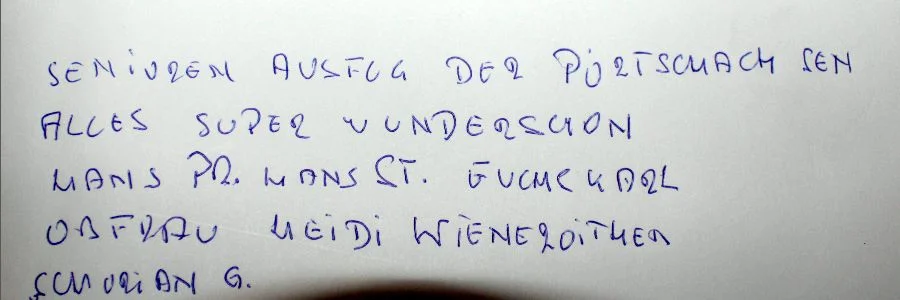 SENIOREN AUSFUG DER PÖRTSCHACH SEN
ALLES SUPER WUNDERSCHON
HANS PR. HANS ST. FUCHS KARL
OBFRAU HEIDI WIENEROITHER
SCHURIAN G.